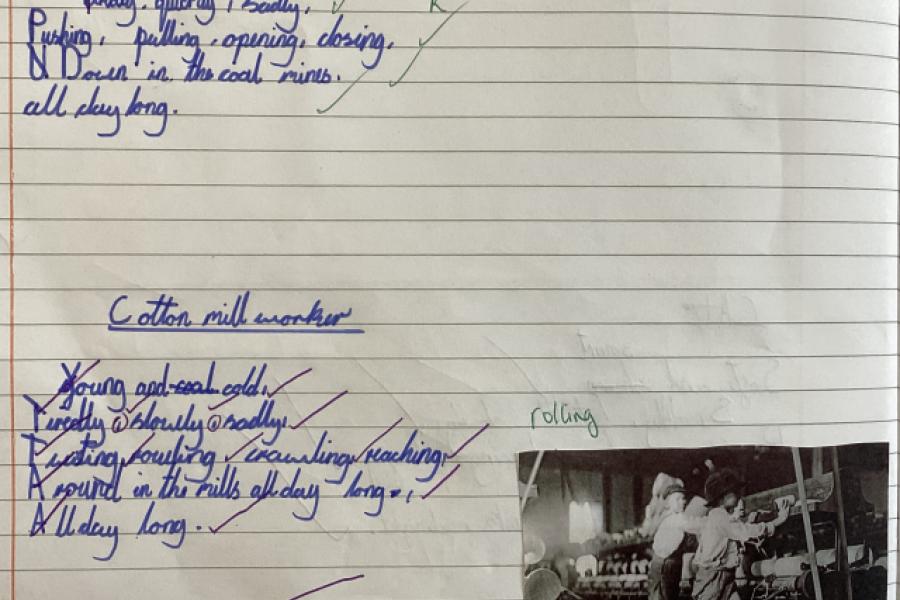 quietly, sadly,
Pushing, pulling, opening, closing,
Down in the coal mines.
all day long.
Cotton mill worker
Young and cold,
Tiredly slowly sadly.
rolling
crawling, reaching,
Around in the mills all day long.,
All day long.